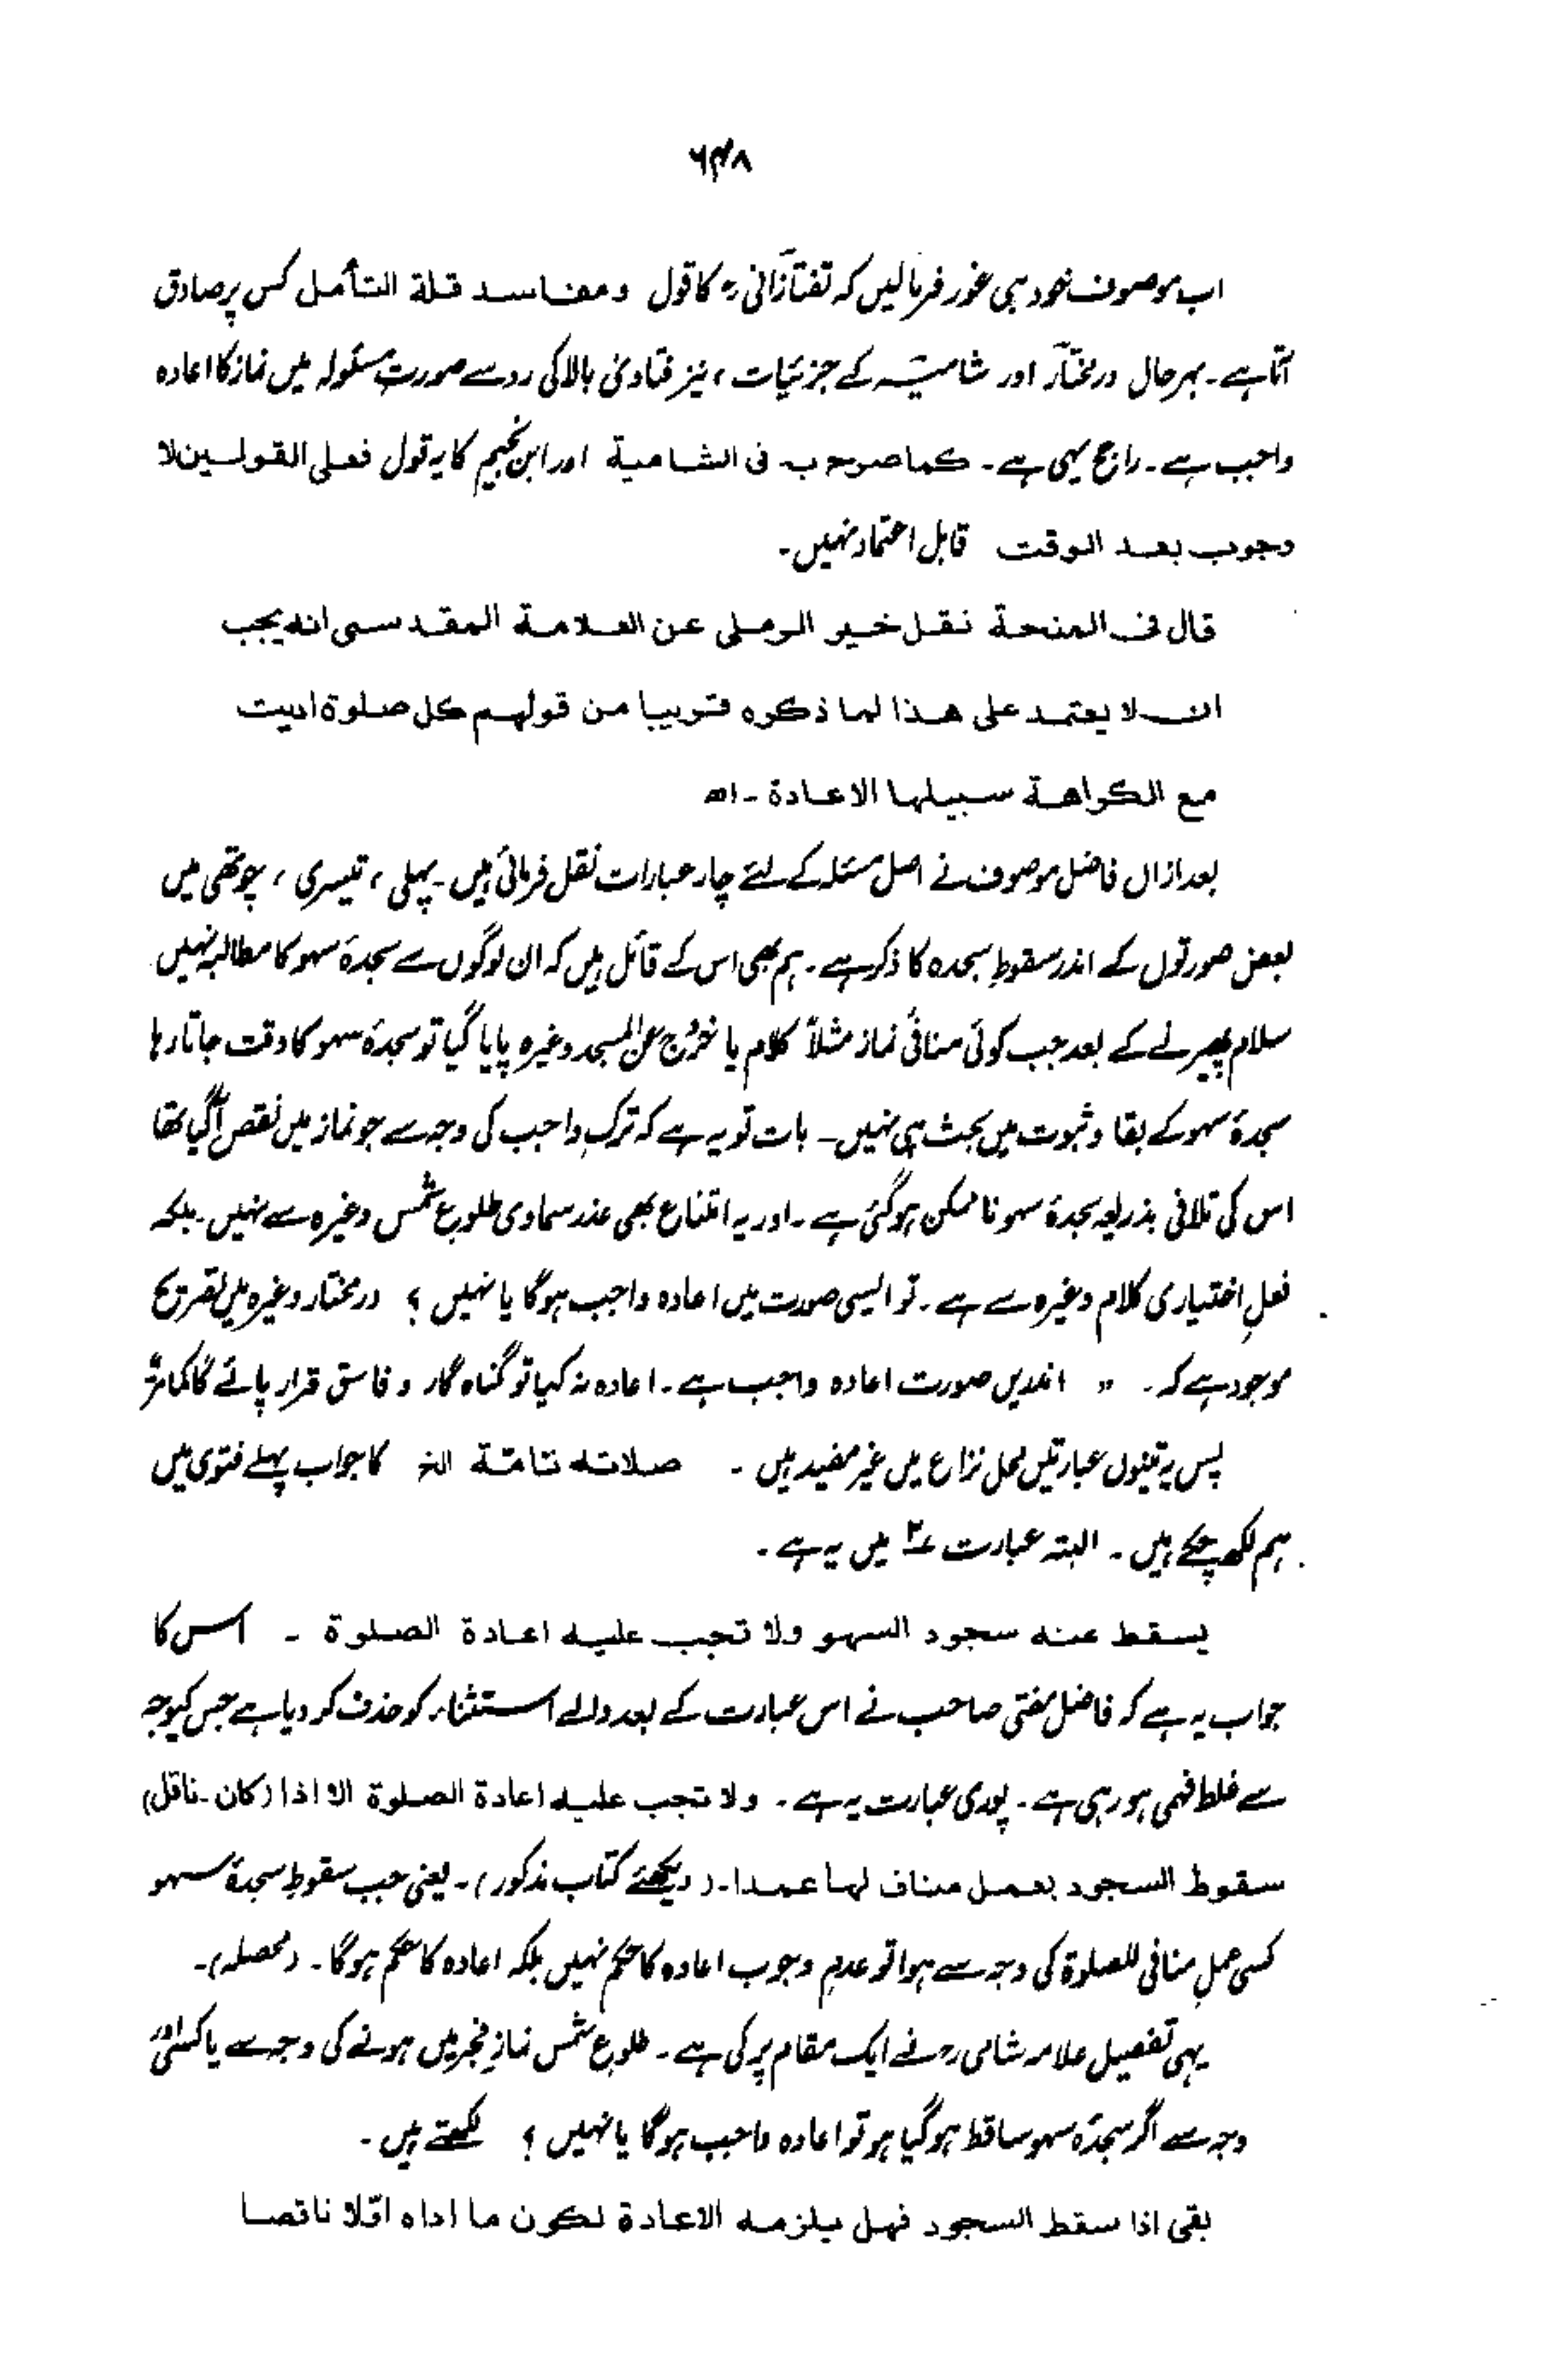 ۶۴۸
اب موصوف خود ہی غور فرمالیں کہ تفتازانی رح کا قول ومفاسد قلة التأمل کس پر صادق
آتا ہے۔ بہرحال درمختار اور شامیہ کے جزئیات، نیز فتاویٰ بالا کی رو سے صورتِ مسئولہ میں نماز کا اعادہ
واجب ہے۔ راجح یہی ہے۔ کما صرح بہ فی الشامیة اور ابن نجیم کا یہ قول فعلی القولین لا
وجوب بعد الوقت قابل اعتماد نہیں۔
قال فی المنحة نقل خیر الرملی عن العلامة المقدسی انه یجب
ان لا یعتمد علی هذا لما ذکره قریبا من قولهم کل صلوة ادیت
مع الکراهة سبیلها الاعادة ۔ اھ
بعد ازاں فاضل موصوف نے اصل مسئلہ کے لئے چار عبارات نقل فرمائی ہیں۔ پہلی، تیسری، چوتھی میں
بعض صورتوں کے اندر سقوطِ سجدہ کا ذکر ہے۔ ہم بھی اس کے قائل ہیں کہ ان لوگوں سے سجدۂ سہو کا مطالبہ نہیں
سلام پھیرنے کے بعد جب کوئی منافیٔ نماز مثلاً کلام یا خروج عن المسجد وغیرہ پایا گیا تو سجدۂ سہو کا وقت جاتا رہا
سجدۂ سہو کے بقا و ثبوت میں بحث ہی نہیں۔ بات تو یہ ہے کہ ترکِ واجب کی وجہ سے جو نماز میں نقص آگیا تھا
اس کی تلافی بذریعہ سجدۂ سہو ناممکن ہوگئی ہے۔ اور یہ امتناع بھی عذر سماوی طلوع شمس وغیرہ سے نہیں۔ بلکہ
فعلِ اختیاری کلام وغیرہ سے ہے۔ تو ایسی صورت میں اعادہ واجب ہوگا یا نہیں؟ درمختار وغیرہ میں تصریح
موجود ہے کہ۔ " اندریں صورت اعادہ واجب ہے۔ اعادہ نہ کیا تو گناہ گار و فاسق قرار پائے گا کما مرّ
پس یہ تینوں عبارتیں محل نزاع میں غیر مفید ہیں۔ صلاته تامّة الخ کا جواب پہلے فتوی میں
ہم لکھ چکے ہیں۔ البتہ عبارت ۲ میں یہ ہے۔
یسقط عنه سجود السهو ولا تجب علیه اعادة الصلوة ۔ اس کا
جواب یہ ہے کہ فاضل مفتی صاحب نے اس عبارت کے بعد والے استثناء کو حذف کر دیا ہے جس کیوجہ
سے غلط فہمی ہو رہی ہے۔ پوری عبارت یہ ہے۔ ولا تجب علیه اعادة الصلوة الا اذا (کان۔ ناقل)
سقوط السجود بعمل مناف لها عمدا۔ (دیکھئے کتاب مذکور)۔ یعنی جب سقوطِ سجدۂ سہو
کسی عملِ منافی للصلوۃ کی وجہ سے ہوا تو عدمِ وجوب اعادہ کا حکم نہیں بلکہ اعادہ کا حکم ہوگا۔ (محصلہ)۔
یہی تفصیل علامہ شامی رح نے ایک مقام پر کی ہے۔ طلوعِ شمس نمازِ فجر میں ہونے کی وجہ سے یا کسی اور
وجہ سے اگر سجدۂ سہو ساقط ہو گیا ہو تو اعادہ واجب ہوگا یا نہیں؟ لکھتے ہیں۔
بقی اذا سقط السجود فهل یلزمه الاعادة لکون ما اداه اوّلا ناقصا